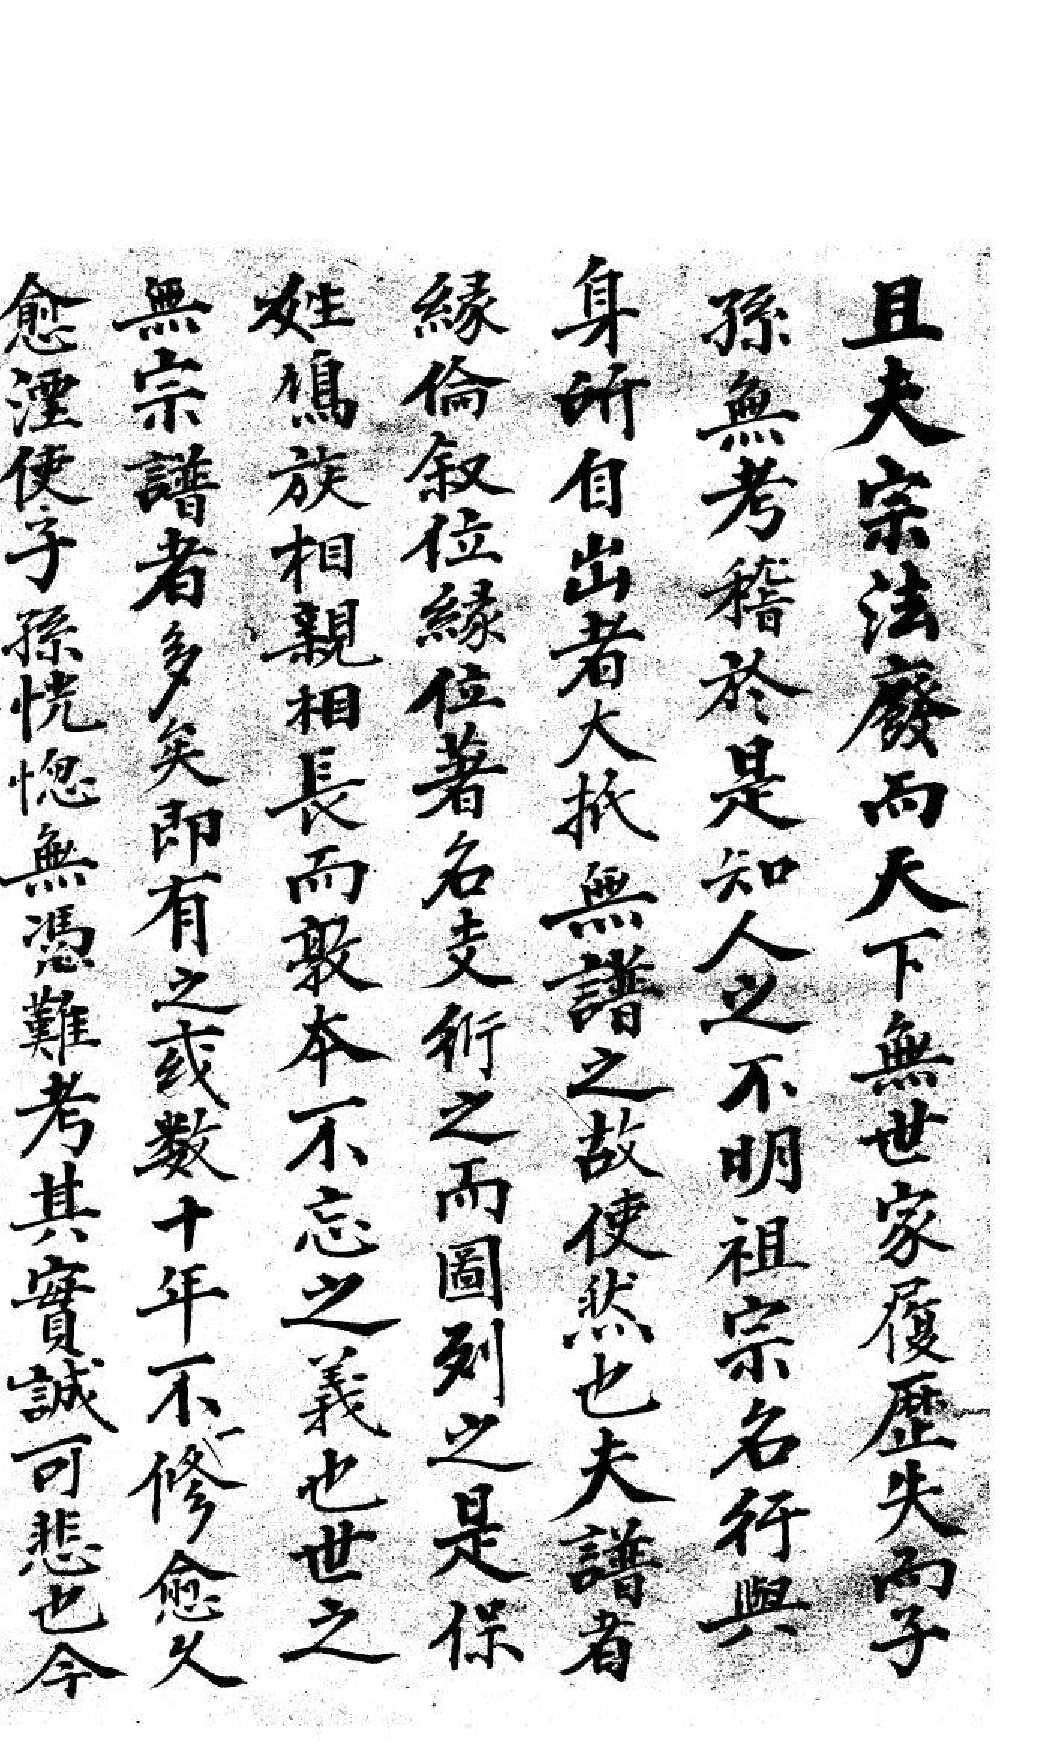 且夫宗法廢而天下無世家履歷失而子
孫無考稽於是知人之不明祖宗名行與
身所自出者大抵無譜之故使然也夫譜者
緣倫叙位緣位著名支衍之而圖列之是保
姓鳩族相親相長而敦本不忘之義也世之
無宗譜者多矣即有之或数十年不修愈久
愈湮使子孫恍惚無憑難考其實誠可悲也今